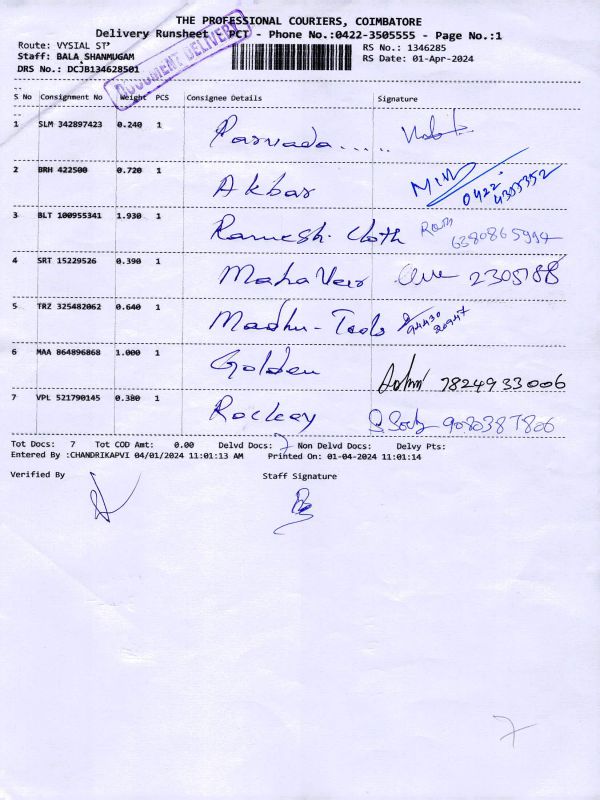 THE PROFESSIONAL COURIERS, COIMBATORE
Delivery Runsheet PCT - Phone No.:0422-3505555 - Page No.:1
Route: VYSIAL ST'
Staff: BALA SHANMUGAM
DRS No.: DCJB134628501
RS No.: 1346285
RS Date: 01-Apr-2024
DOCUMENT DELIVERY
S No Consignment No Weight PCS Consignee Details Signature
1 SLM 342897423 0.240 1 Parvada.....
2 BRH 422500 0.720 1 Akbar 0422 4355352
3 BLT 100955341 1.930 1 Ramesh Cloth Ram 6380865994
4 SRT 15229526 0.390 1 MahaVeer 2305188
5 TRZ 325482062 0.640 1 Madhu-Tools
6 MAA 864896868 1.000 1 Golden 7824933006
7 VPL 521790145 0.380 1 Rockey 9080387806
Tot Docs: 7 Tot COD Amt: 0.00 Delvd Docs: 7 Non Delvd Docs: Delvy Pts:
Entered By :CHANDRIKAPVI 04/01/2024 11:01:13 AM Printed On: 01-04-2024 11:01:14
Verified By Staff Signature
7